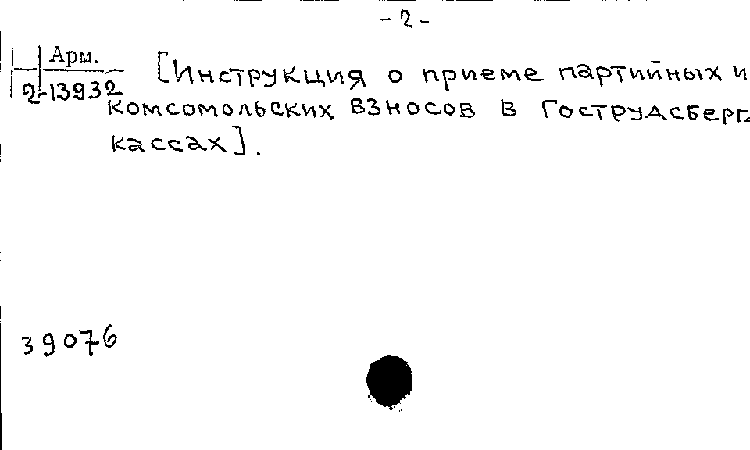 - 2 -
Арм.
2-13932
[Инструкция о приеме партийных и
комсомольских взносов в Гострудсберг
кассах].
39076